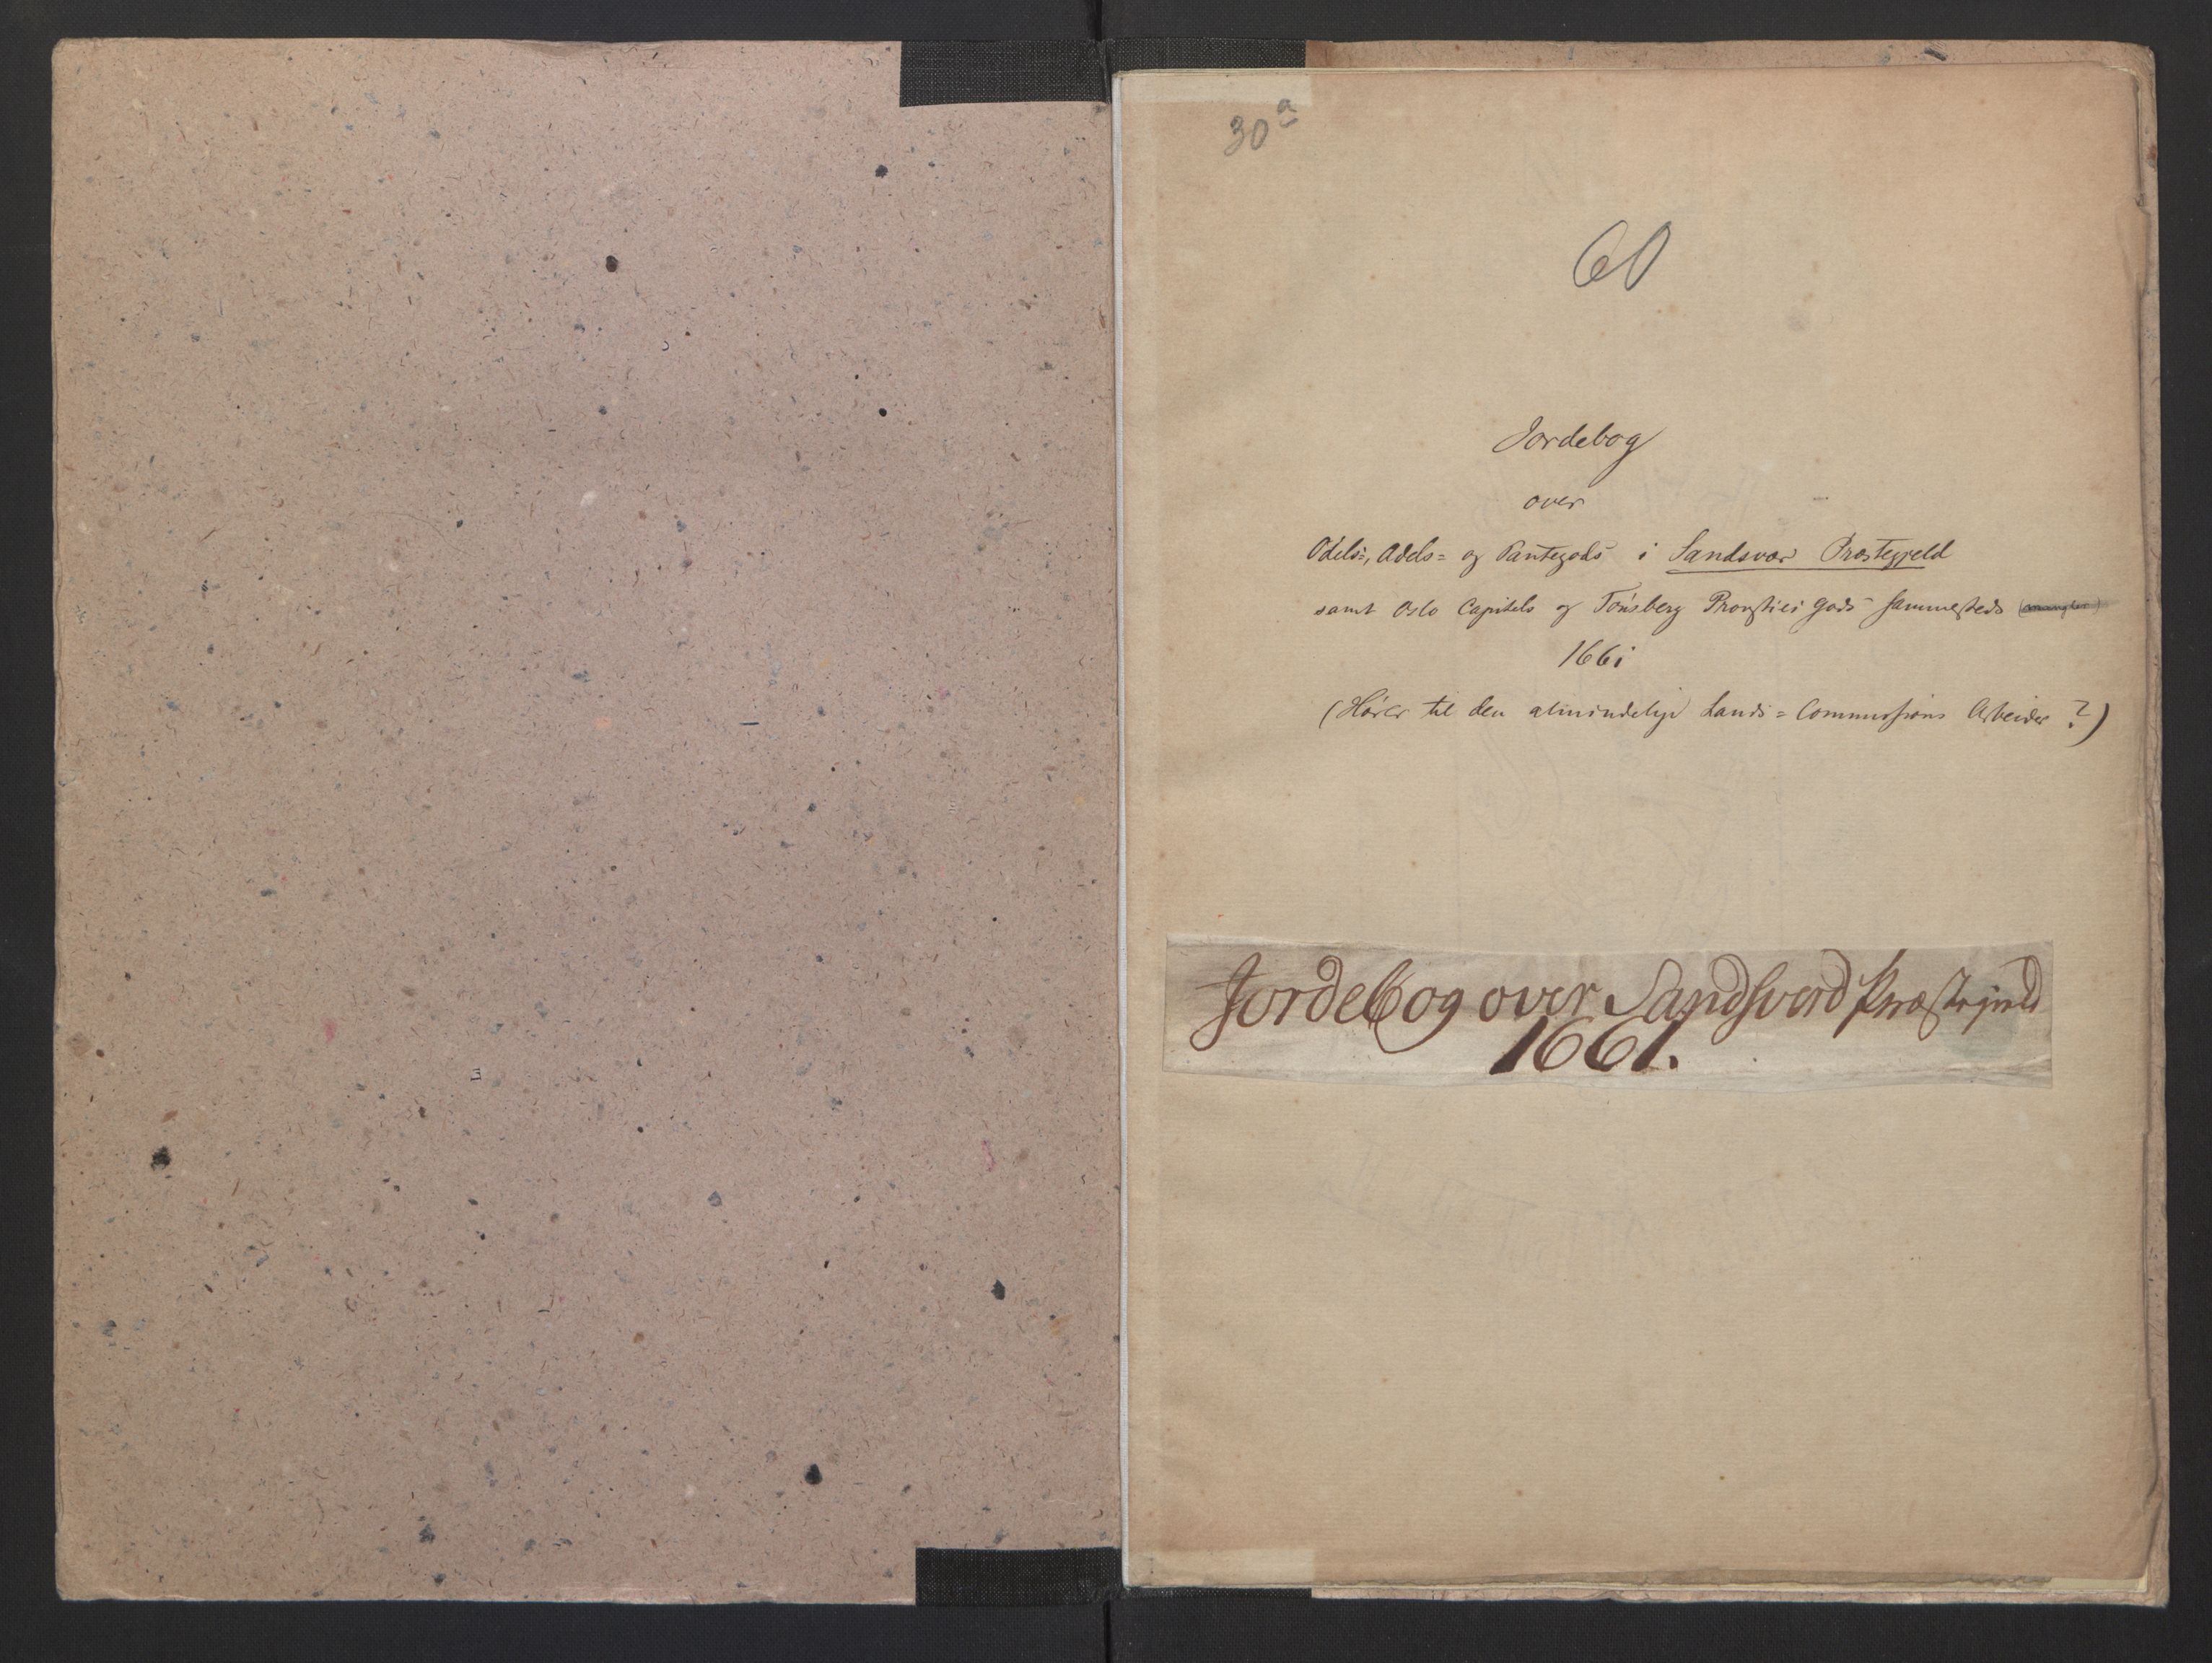 30 a
60
Jordebog
over
Odels-, Adels= og Pantegods i Sandsvær Præstegjeld
samt Oslo Capitels og Tønsberg Provstiei Gods sammesteds (mangler)
1661
(Hører til den almindelige Lands=Commissions Arbeider?)
Jordebog over Sandsverd Præstegield
1661.